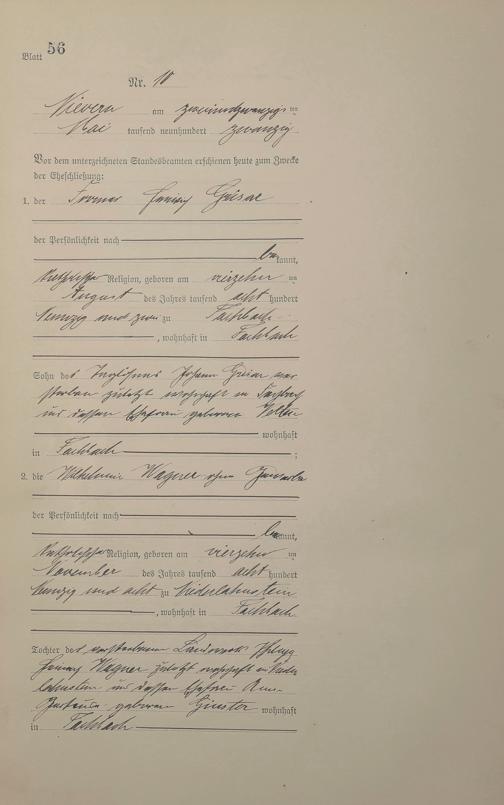 Blatt 56
Nr. 10
Nievern am zweiundzwanzigs ten
Mai tausend neunhundert zwanzig
Vor dem unterzeichneten Standesbeamten erschienen heute zum Zwecke
der Eheschließung:
1. der Former Heinrich
der Persönlichkeit nach
be kannt,
katholischer Religion, geboren am vierzehn ten
August des Jahres tausend acht hundert
neunzig und zwei zu Fachbach
, wohnhaft in Fachbach
Sohn des Johann ver
storbenen zuletzt wohnhaft in Fachbach
und dessen Ehefrau geborenen
wohnhaft
in Fachbach ;
2. die Wilhelmine Wagner ohne Gewerbe
der Persönlichkeit nach
be kannt,
katholischer Religion, geboren am vierzehn ten
November des Jahres tausend acht hundert
neunzig und acht zu Niederlahnstein
, wohnhaft in Fachbach
Tochter des verstorbenen
Wagner zuletzt wohnhaft in Nieder
lahnstein und dessen Ehefrau
geborenen wohnhaft
in Fachbach